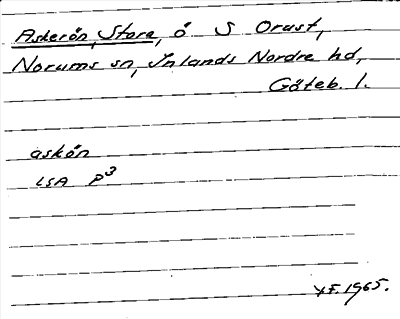 Askerön, Stora, ö S Orust,
Norums sn, Inlands Nordre hd,
Göteb. l.
askön
LSA P3
YF. 1965.